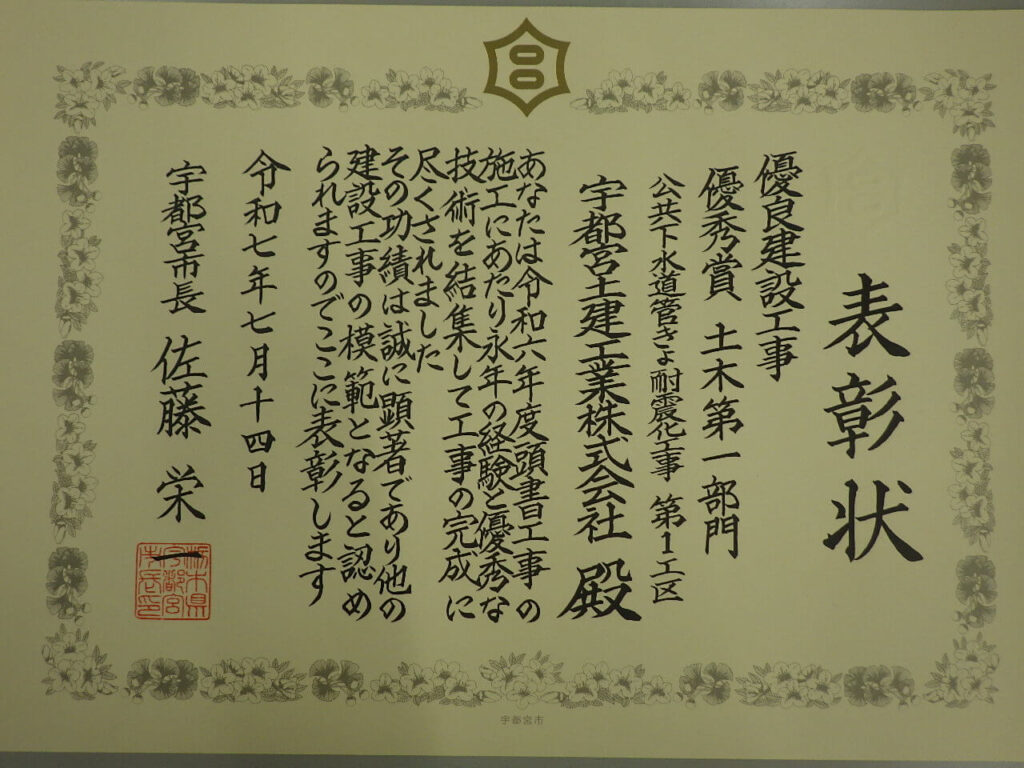 表彰状
優良建設工事
優秀賞 土木第一部門
公共下水道管きょ耐震化工事 第1工区
宇都宮土建工業株式会社 殿
あなたは令和六年度頭書工事の
施工にあたり永年の経験と優秀な
技術を結集して工事の完成に
尽くされました
その功績は誠に顕著であり他の
建設工事の模範となると認め
られますのでここに表彰します
令和七年七月十四日
宇都宮市長 佐藤 栄一
栃木県
宇都宮
市長印
宇都宮市